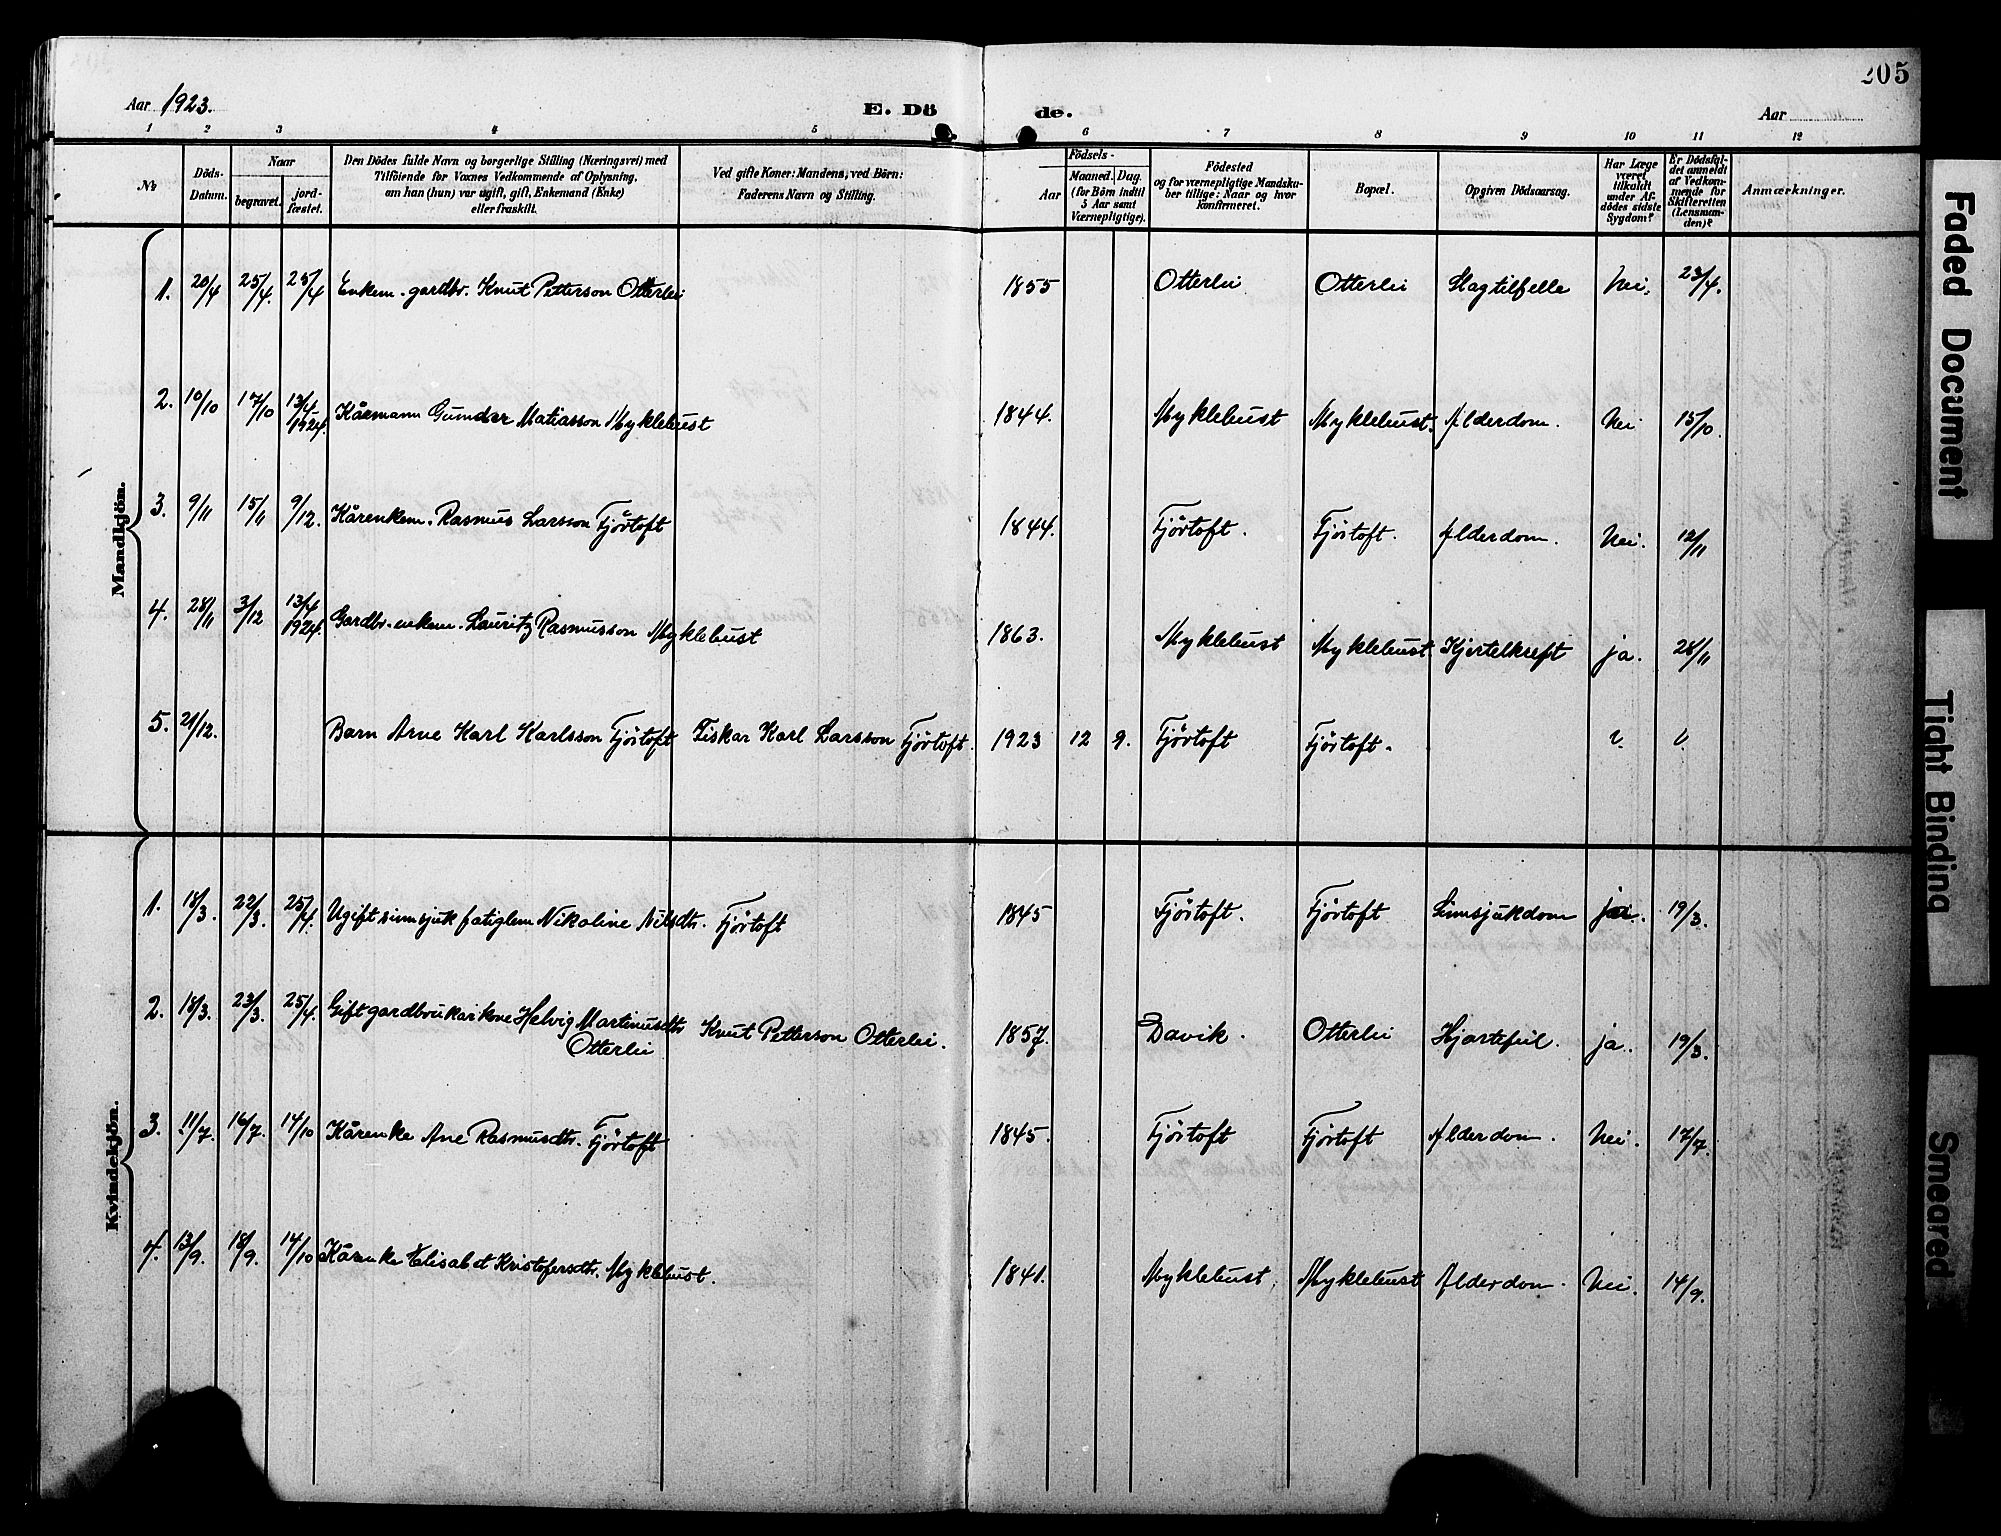 205
Aar 1923.
E. Dö de.
Aar
1 2 3 4 5 6 7 8 9 10 11 12
№
Döds-Datum.
Naar
begravet.
jord-fæstet.
Den Dödes fulde Navn og borgerlige Stilling (Næringsvei) med
Tilföiende for Voxnes Vedkommende af Oplysning,
om han (hun) var ugift, gift, Enkemand (Enke)
eller fraskilt.
Ved gifte Koner: Mandens, ved Börn:
Faderens Navn og Stilling.
Födsels-
Aar
Maaned. Dag.
(for Börn indtil
5 Aar samt
Værnepligtige).
Födested
og for værnepligtige Mandska-
ber tillige: Naar og hvor
konfirmeret.
Bopæl.
Opgiven Dödsaarsag.
Har Læge
været
tilkaldt
under Af-
dödes sidste
Sygdom?
Er Dödsfal-
det anmeldt
af Vedkom-
mende for
Skifteretten
(Lensman-
den)?
Anmærkninger.
Mandkjön.
1. 20/4 25/4. 25/4 Enkem. gardbr. Knut Petterson Otterlei 1855 Otterlei Otterlei Slagtilfelle Nei. 23/4.
2. 10/10 17/10 13/4 1924. Kårmann Gunder Matiasson Myklebust 1844. Myklebust Myklebust. Alderdom. Nei 15/10.
3. 9/11 15/11 9/12. Kårenkem. Rasmus Larsson Fjørtoft 1844. Fjørtoft. Fjørtoft. Alderdom. Nei. 12/11
4. 28/11 3/12 13/4 1924. Gardbr. enkem. Lauritz Rasmusson Myklebust 1863. Myklebust Myklebust Kjertelkreft ja. 28/11
5. 21/12. Barn Arne Karl Karlsson Fjørtoft Fiskar Karl Larsson Fjørtoft. 1923 12 9. Fjørtoft Fjørtoft.
Kvindekjön.
1. 18/3. 22/3. 25/4. Ugift sinnsjuk fatiglem Nikoline Nilsdtr. Fjørtoft 1845 Fjørtoft. Fjørtoft Sinnsjukdom ja. 19/3.
2. 18/3. 23/3. 25/4. Gift gardbrukarkone Helvig Martinusdtr Otterlei Knut Petterson Otterlei. 1857. Davik. Otterlei Hjartefeil. ja. 19/3.
3. 11/7. 16/7. 14/10 Kårenke Ane Rasmusdtr. Fjørtoft 1845. Fjørtoft Fjørtoft Alderdom. Nei. 17/7.
4. 13/9. 18/9. 14/10 Kårenke Elisabet Kristofersdtr. Myklebust. 1841. Myklebust. Myklebust Alderdom. Nei. 14/9.
Faded Document
Tight Binding
Smeared